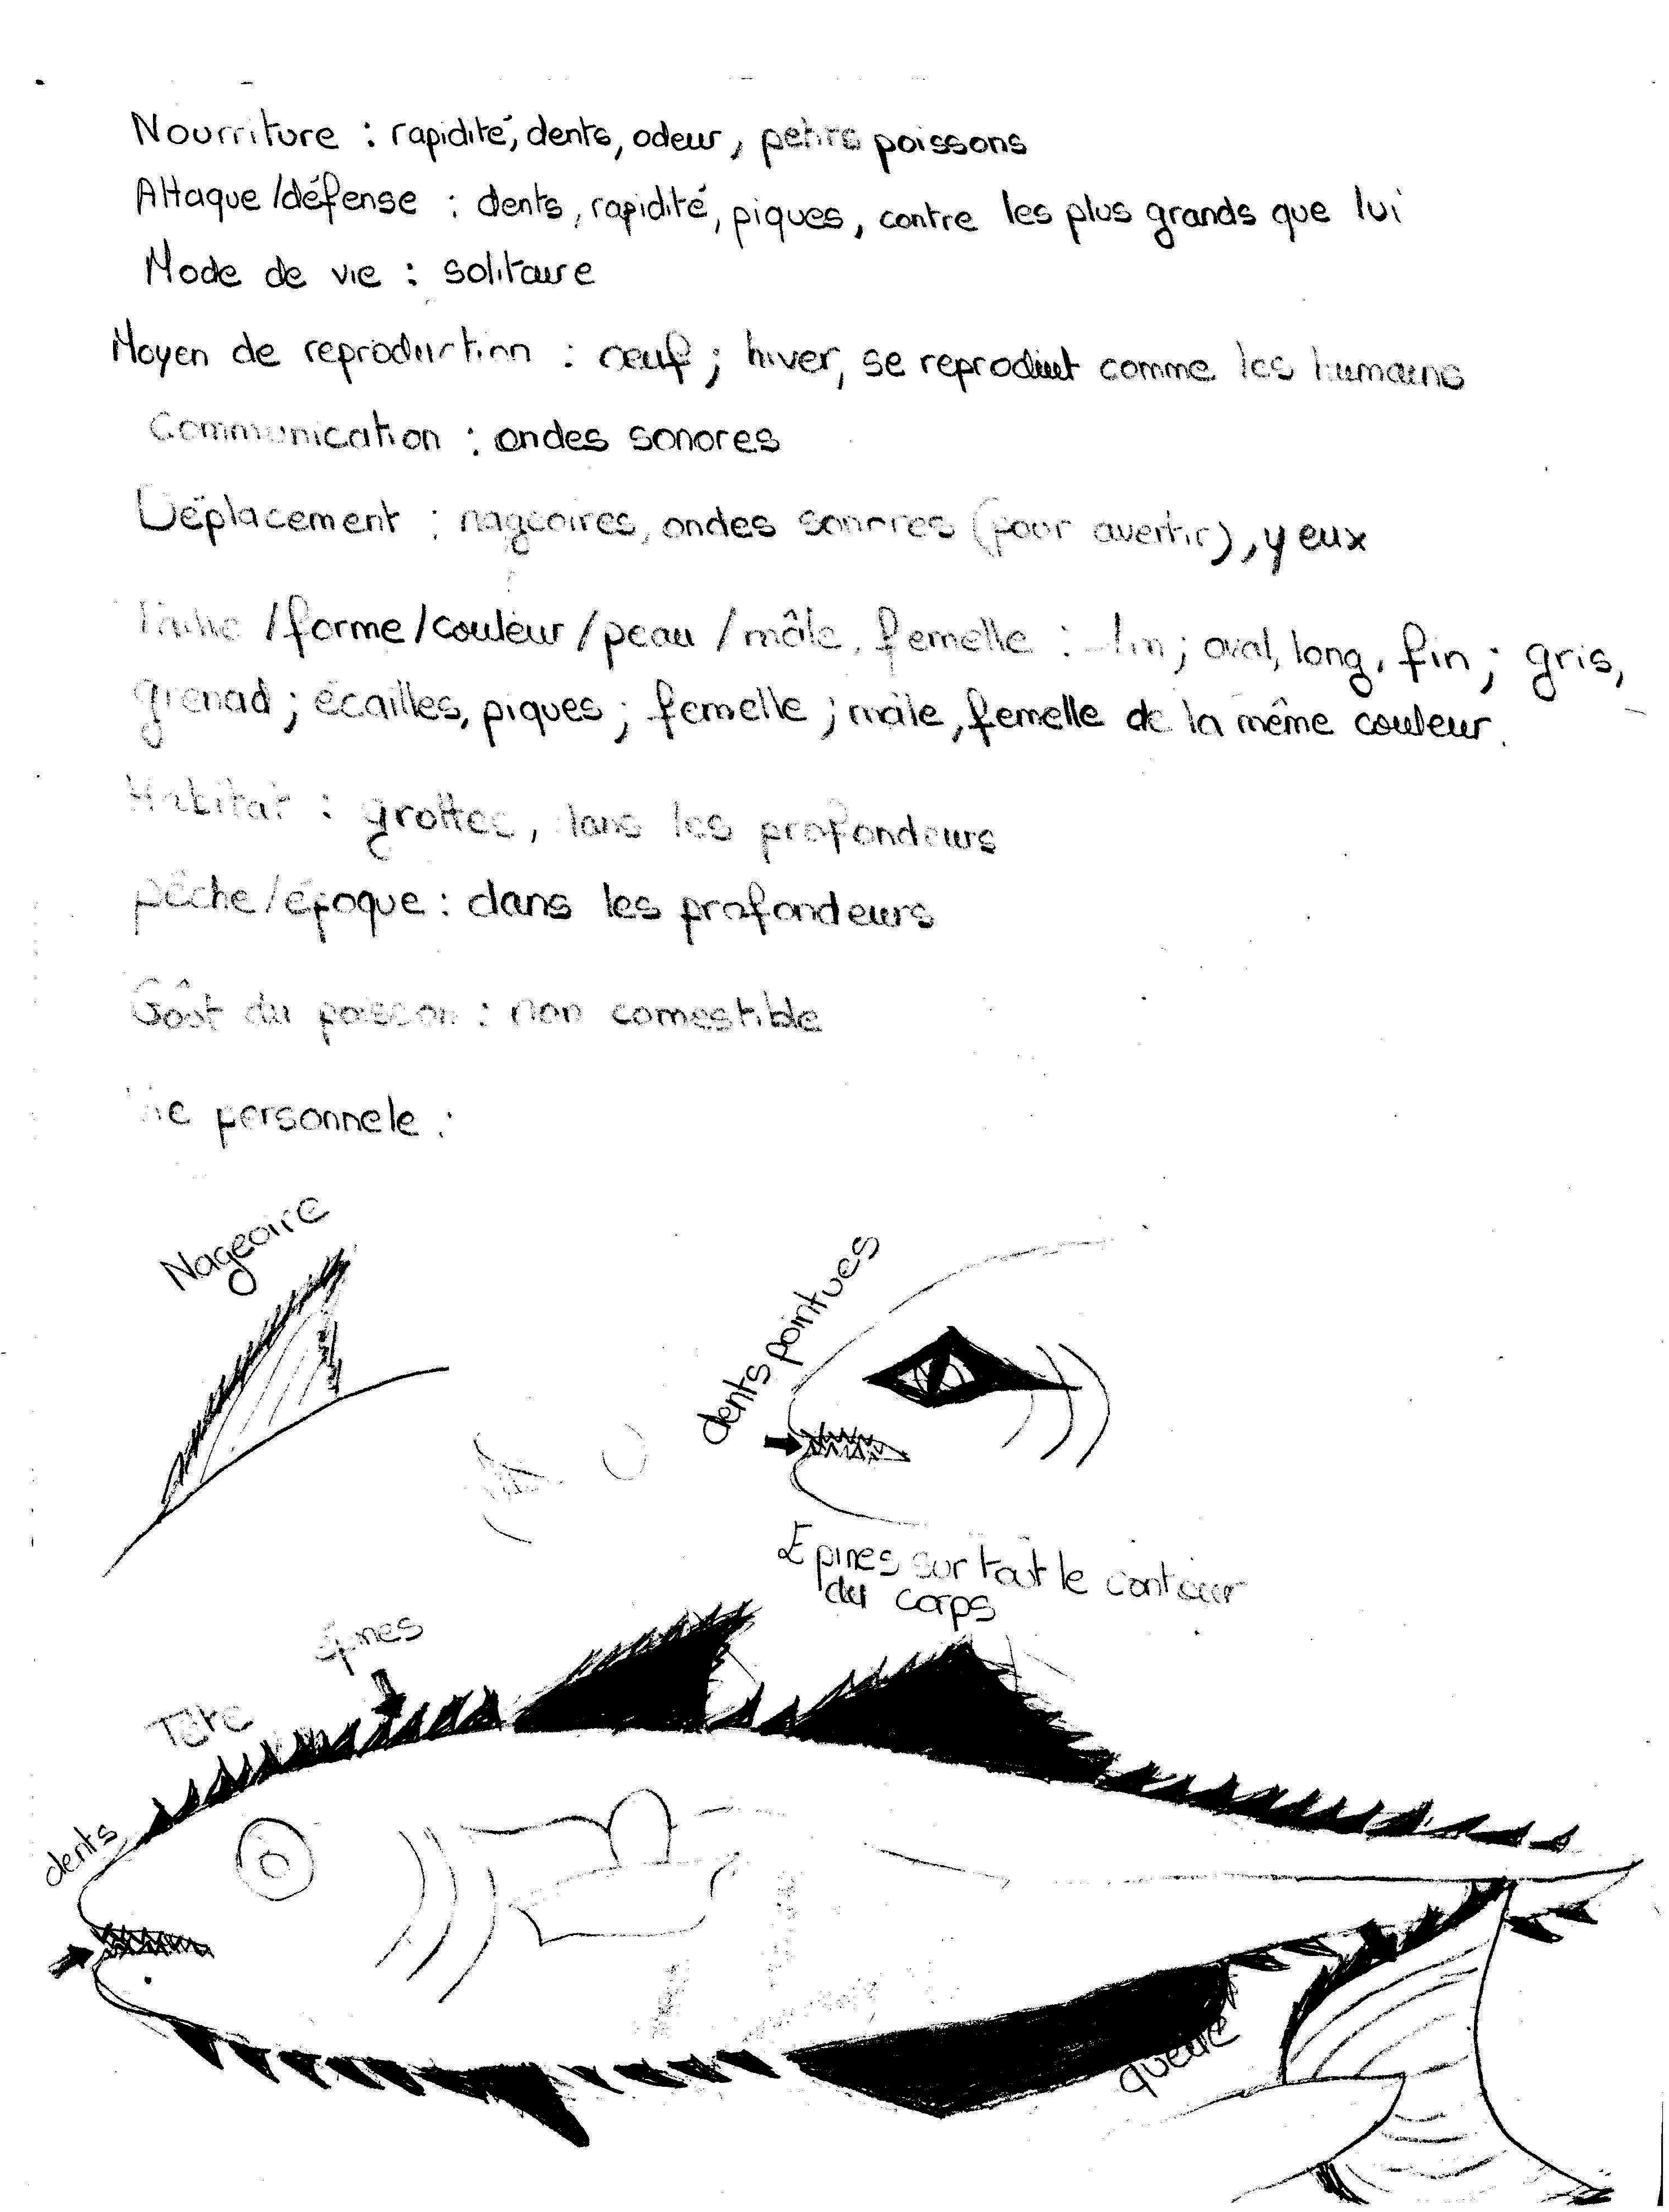 Nourriture : rapidité, dents, odeur, petits poissons
Attaque/défense : dents, rapidité, piques, contre les plus grands que lui
Mode de vie : solitaire
Moyen de reproduction : œuf ; hiver, se reproduit comme les humains
Communication : ondes sonores
Déplacement : nageoires, ondes sonores (pour avertir), yeux
Taille /forme/couleur/peau/mâle, femelle : 1m ; oval, long, fin ; gris,
grenad ; écailles, piques ; femelle ; mâle, femelle de la même couleur.
Habitat : grottes, dans les profondeurs
pêche/époque : dans les profondeurs
Goôt du poisson : non comestible
Vie personnele :
Nageoire
dents pointues
Epines sur tout le contour
du corps
épines
Tête
dents
queue